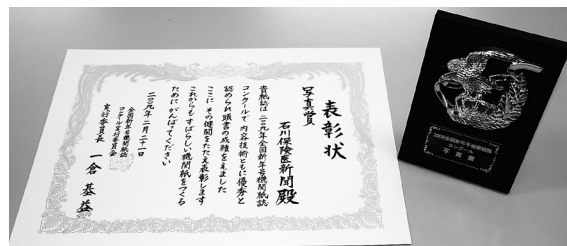 表彰状
写真賞
石川保険医新聞殿
貴紙誌は二〇〇九年全国新年号機関紙誌
コンクールで内容技術ともに優秀と
認められ頭書の成績をえました
ここにその健闘をたたえ表彰します
これからもすばらしい機関紙をつくる
ためにがんばってください
二〇〇九年二月二十一日
全国新年号機関紙誌
コンクール実行委員会
実行委員長 一倉基益
コンクール
写真賞